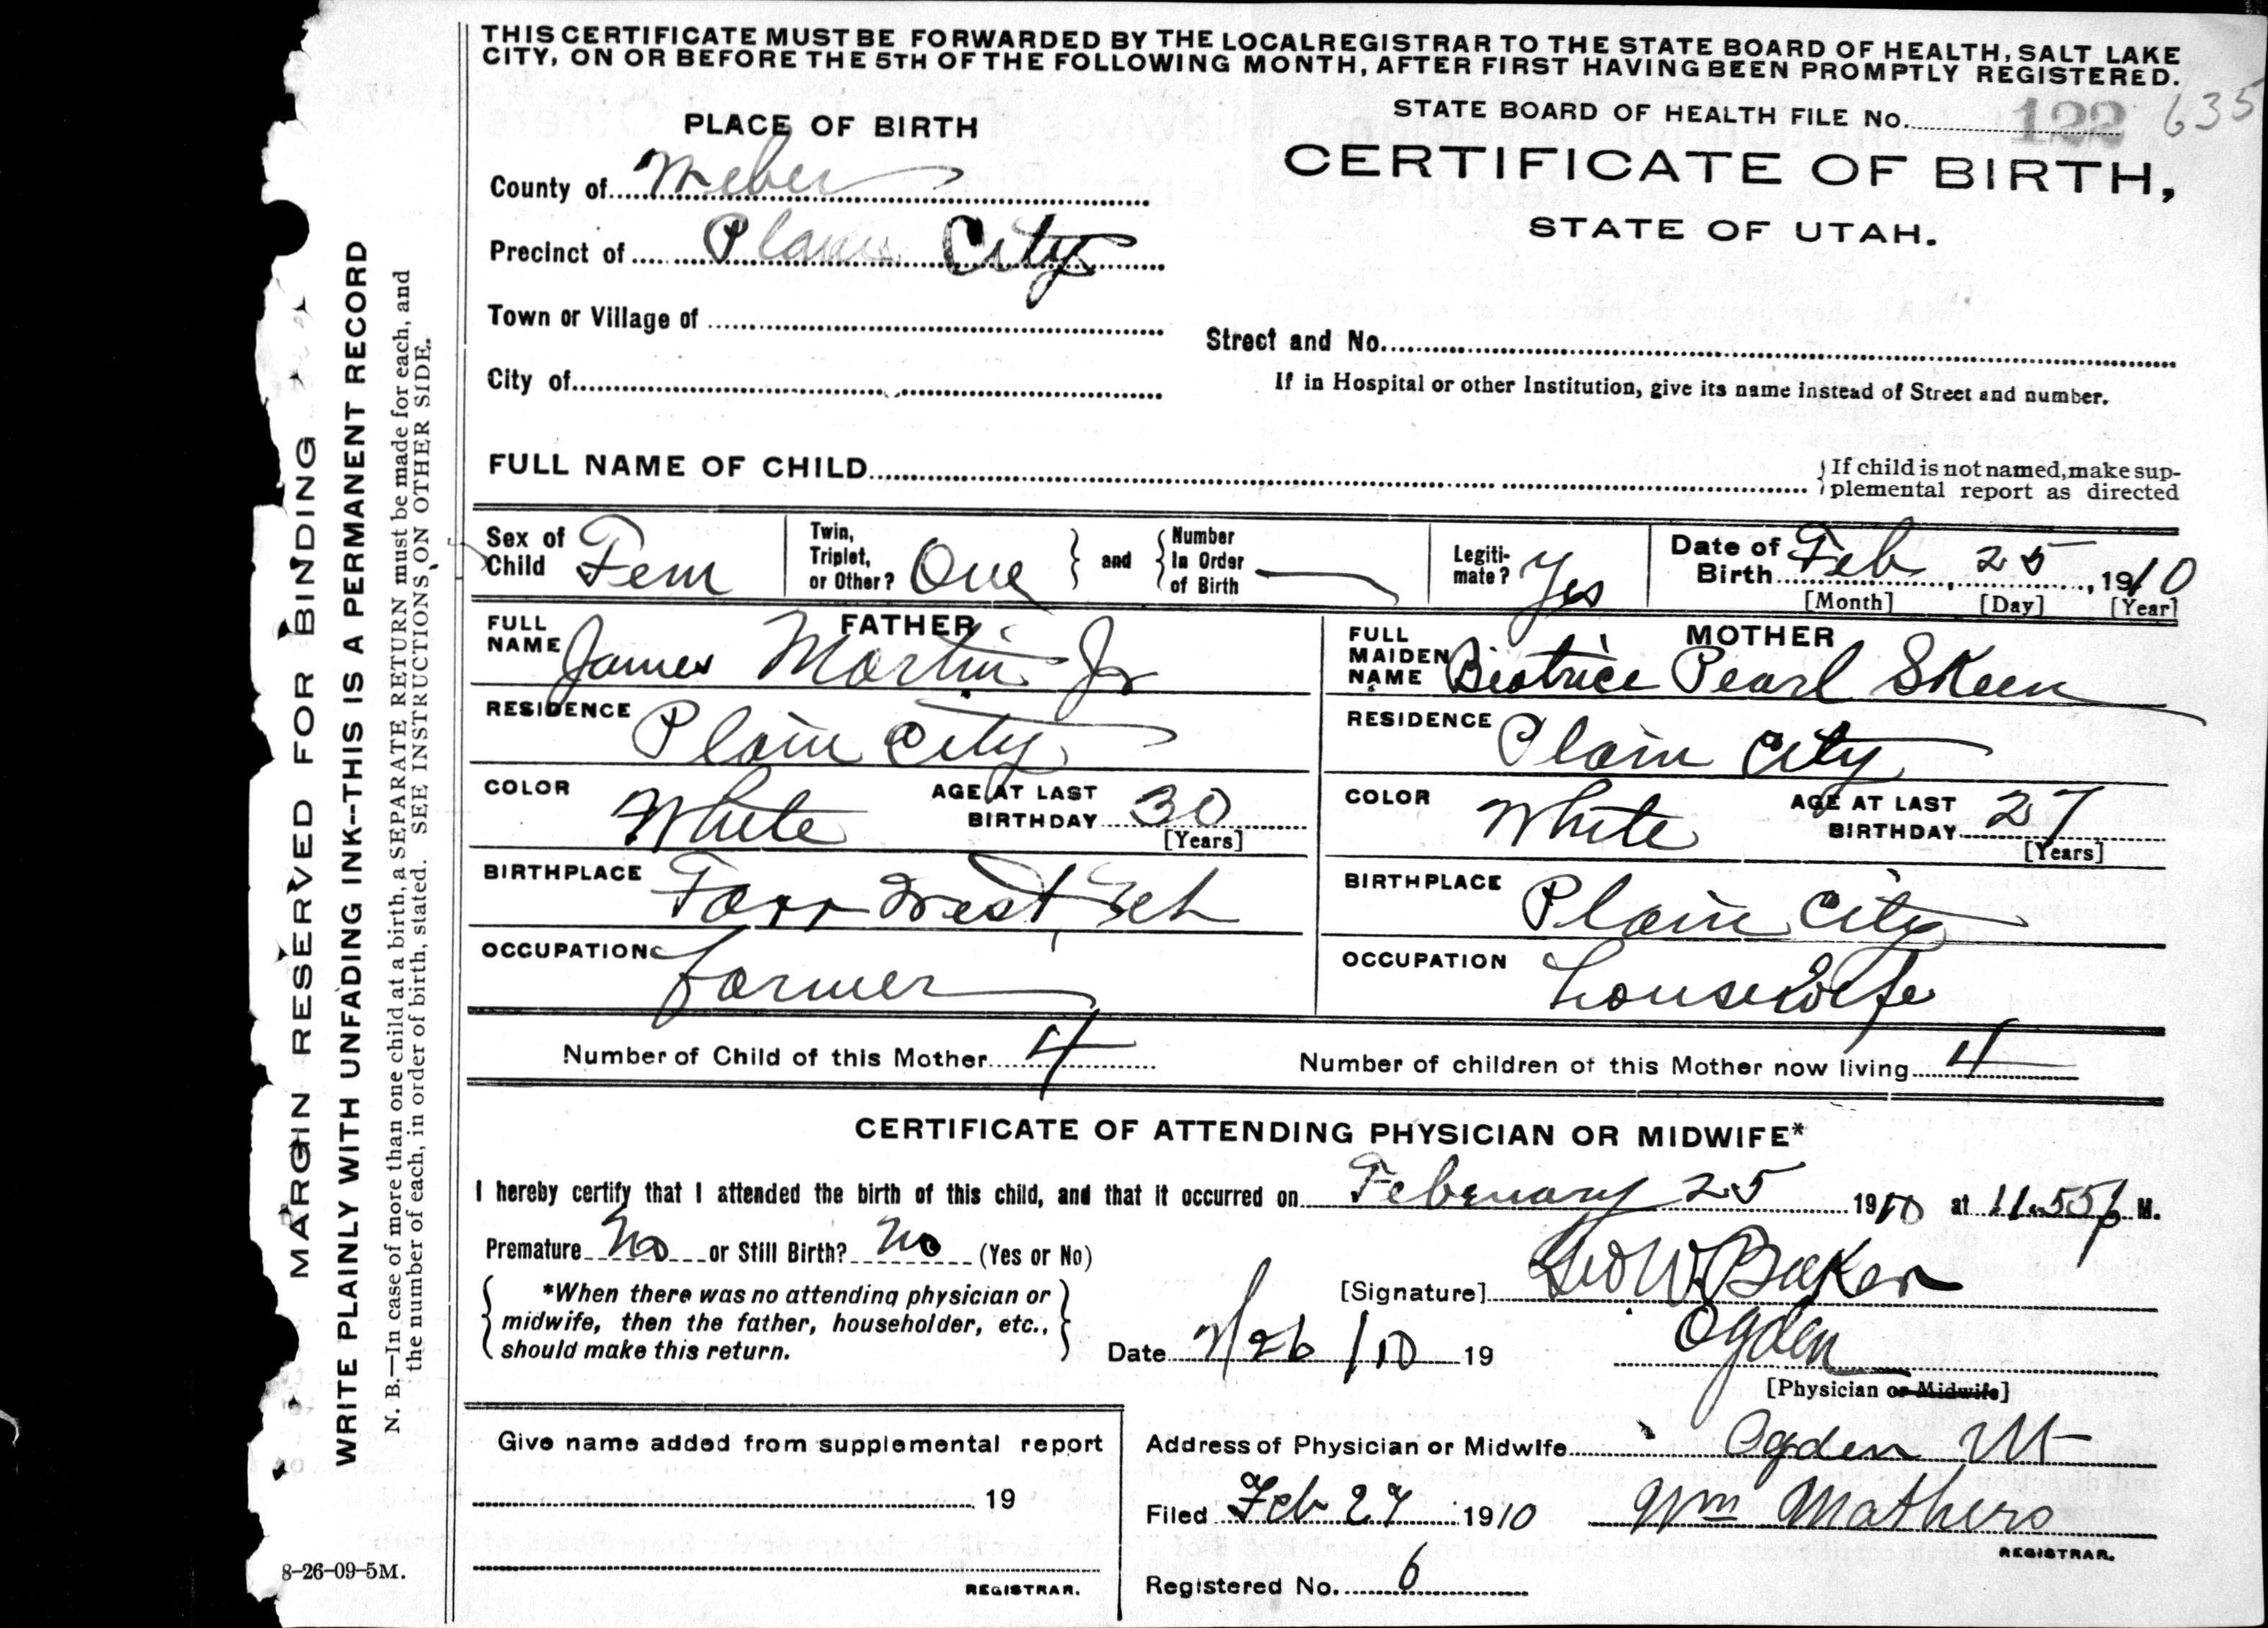 THIS CERTIFICATE MUST BE FORWARDED BY THE LOCAL REGISTRAR TO THE STATE BOARD OF HEALTH, SALT LAKE
CITY, ON OR BEFORE THE 5TH OF THE FOLLOWING MONTH, AFTER FIRST HAVING BEEN PROMPTLY REGISTERED.
STATE BOARD OF HEALTH FILE No. 122 635
PLACE OF BIRTH
CERTIFICATE OF BIRTH,
STATE OF UTAH.
County of Weber
Precinct of Plain City
Town or Village of
Street and No.
City of
If in Hospital or other Institution, give its name instead of Street and number.
FULL NAME OF CHILD
If child is not named, make sup-
plemental report as directed
Sex of Child Fem
Twin, Triplet, or Other? One and Number In Order of Birth
Legiti-mate? Yes
Date of Birth Feb, 25, 1910
[Month] [Day] [Year]
FATHER
FULL NAME James Martin Jr
RESIDENCE Plain City
COLOR White AGE AT LAST BIRTHDAY 30
[Years]
BIRTHPLACE Farr West, Ut
OCCUPATION farmer
MOTHER
FULL MAIDEN NAME Beatrice Pearl Skeen
RESIDENCE Plain City
COLOR White AGE AT LAST BIRTHDAY 27
[Years]
BIRTHPLACE Plain City
OCCUPATION housewife
Number of Child of this Mother 4 Number of children of this Mother now living 4
CERTIFICATE OF ATTENDING PHYSICIAN OR MIDWIFE*
I hereby certify that I attended the birth of this child, and that it occurred on February 25 1910 at 11.55 p M.
Premature No or Still Birth? No (Yes or No)
*When there was no attending physician or
midwife, then the father, householder, etc.,
should make this return.
[Signature] Geo W Baker
Date 2/26/10 19
Ogden
[Physician or Midwife]
Give name added from supplemental report
19
REGISTRAR.
Address of Physician or Midwife Ogden Ut
Filed Feb 27 1910 Wm Mathers
REGISTRAR.
Registered No. 6
MARGIN RESERVED FOR BINDING
WRITE PLAINLY WITH UNFADING INK--THIS IS A PERMANENT RECORD
N. B.—In case of more than one child at a birth, a SEPARATE RETURN must be made for each, and
the number of each, in order of birth, stated. SEE INSTRUCTIONS ON OTHER SIDE.
8-26-09-5M.